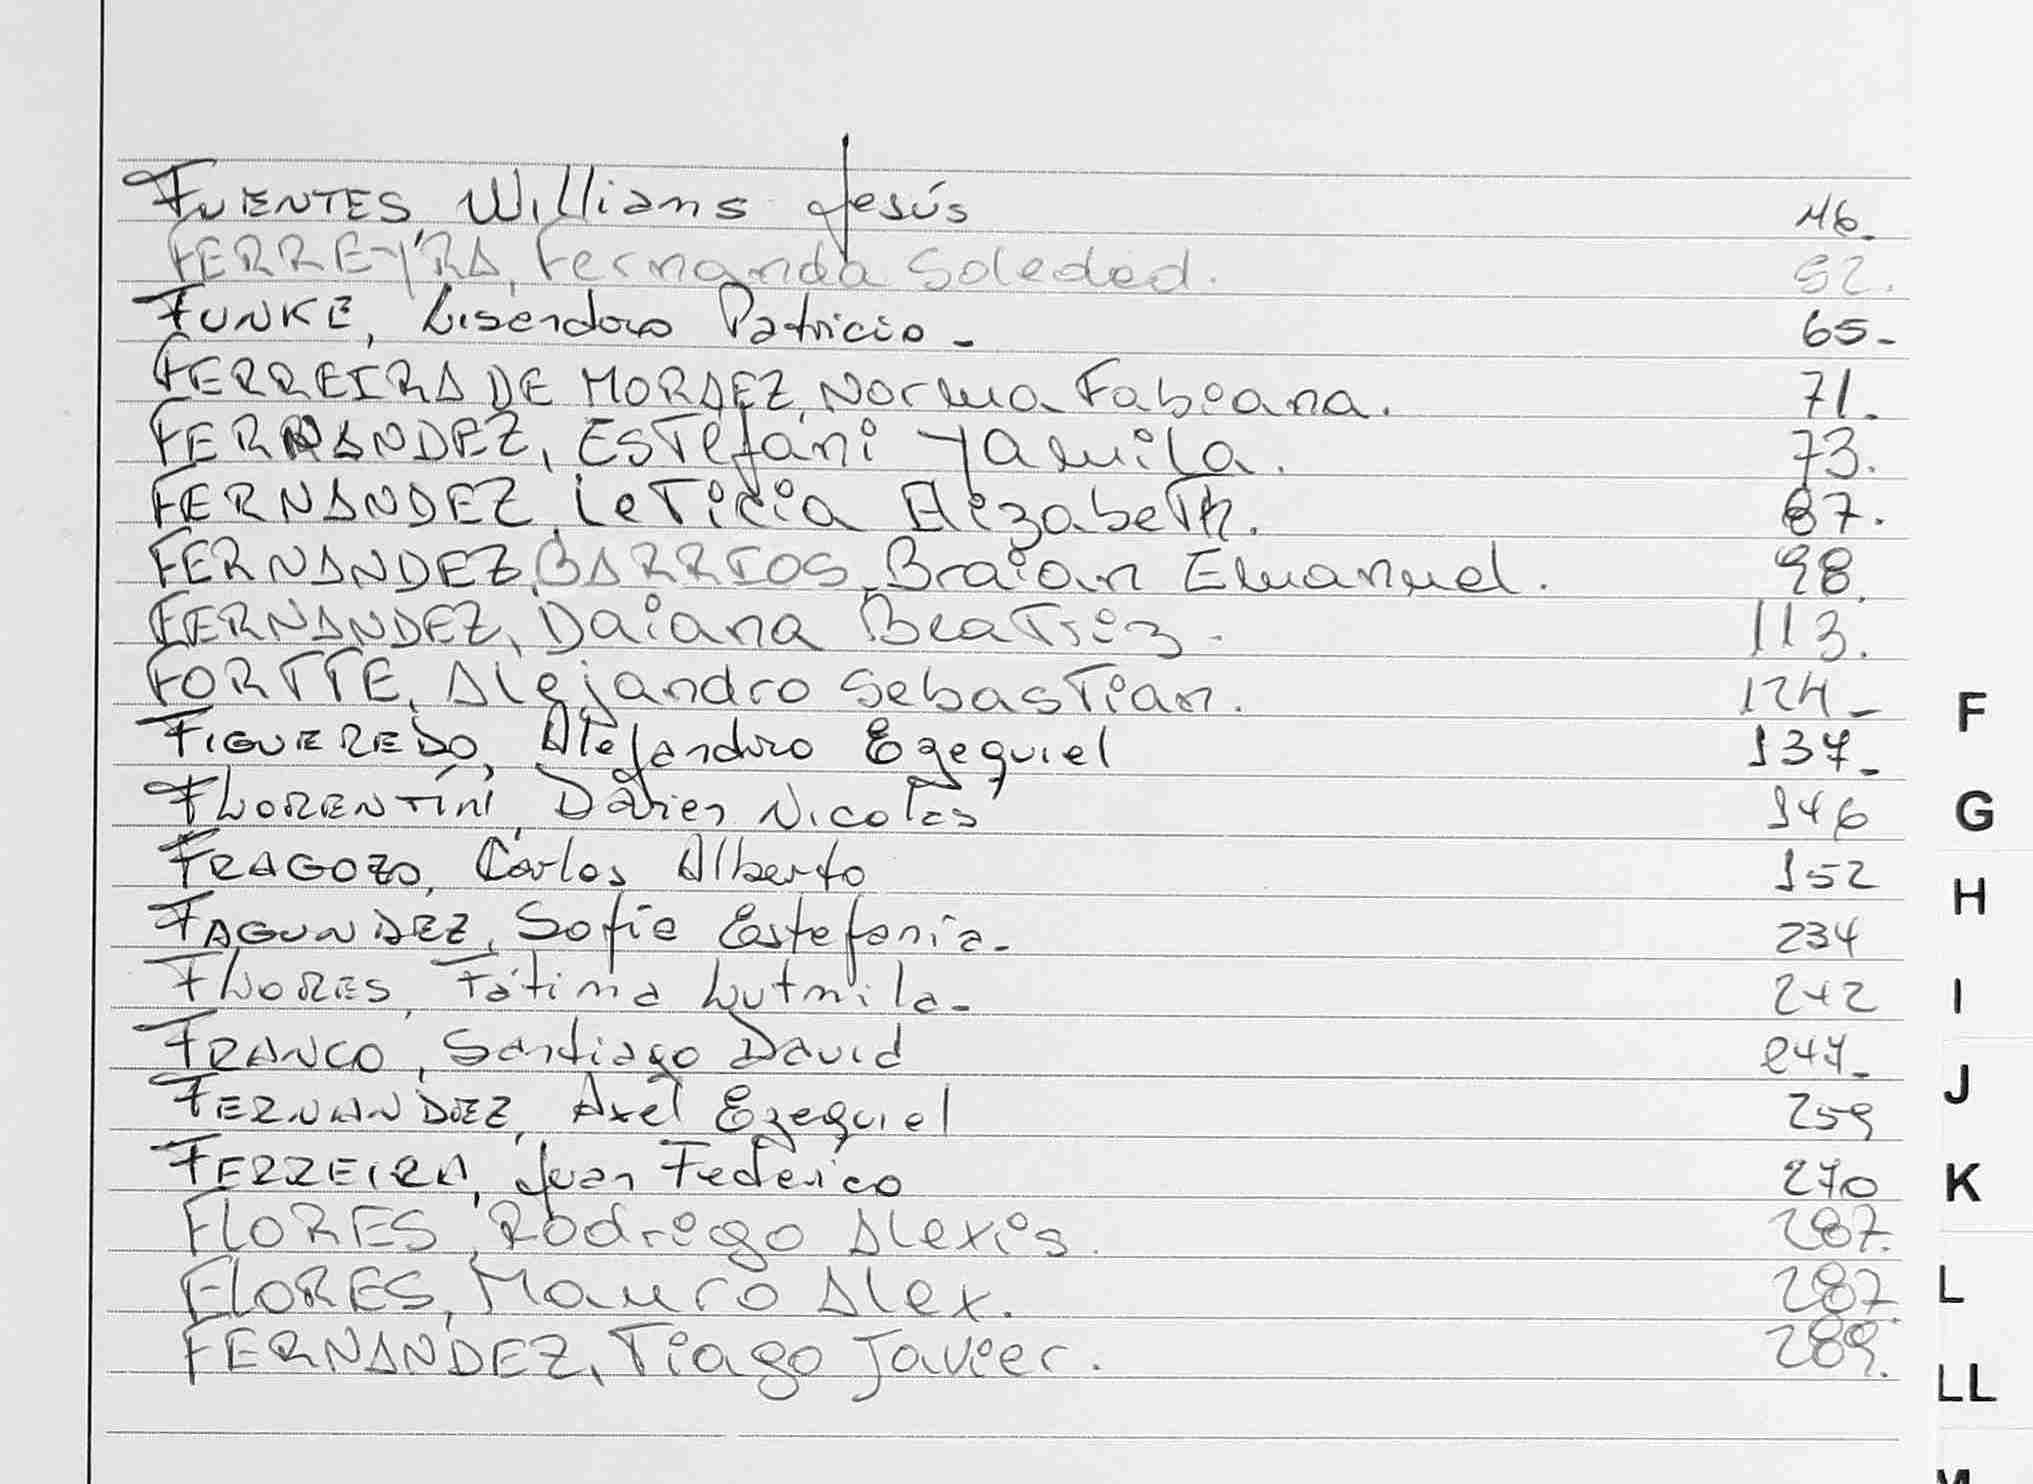 FUENTES Willians Jesús 46.
FERREYRA, Fernanda Soledad. 52.
FUNKE, Lisandro Patricio - 65-
FERREIRA DE MORAEZ, Norma Fabiana. 71.
FERNANDEZ, Estefani Yamila. 73.
FERNANDEZ, Leticia Elizabeth. 87.
FERNANDEZ, BARRIOS, Braian Emanuel. 98.
FERNANDEZ, Daiana Beatriz. 113.
FORTTE, Alejandro Sebastian. 124-
FIGUEREDO, Alejandro Ezequiel 137-
FLORENTÍNI, Darien Nicolás 146
FRAGOZO, Carlos Alberto 152
FAGUNDEZ, Sofia Estefania- 234
FLORES, Fátima Lutmila- 242
FRANCO, Santiago David 247-
FERNANDEZ, Axel Ezequiel 259
FERREIRA, Juan Federico 270
FLORES, Rodrigo Alexis. 287.
FLORES, Mauro Alex. 287.
FERNANDEZ, Tiago Javier. 289.
F
G
H
I
J
K
L
LL
M